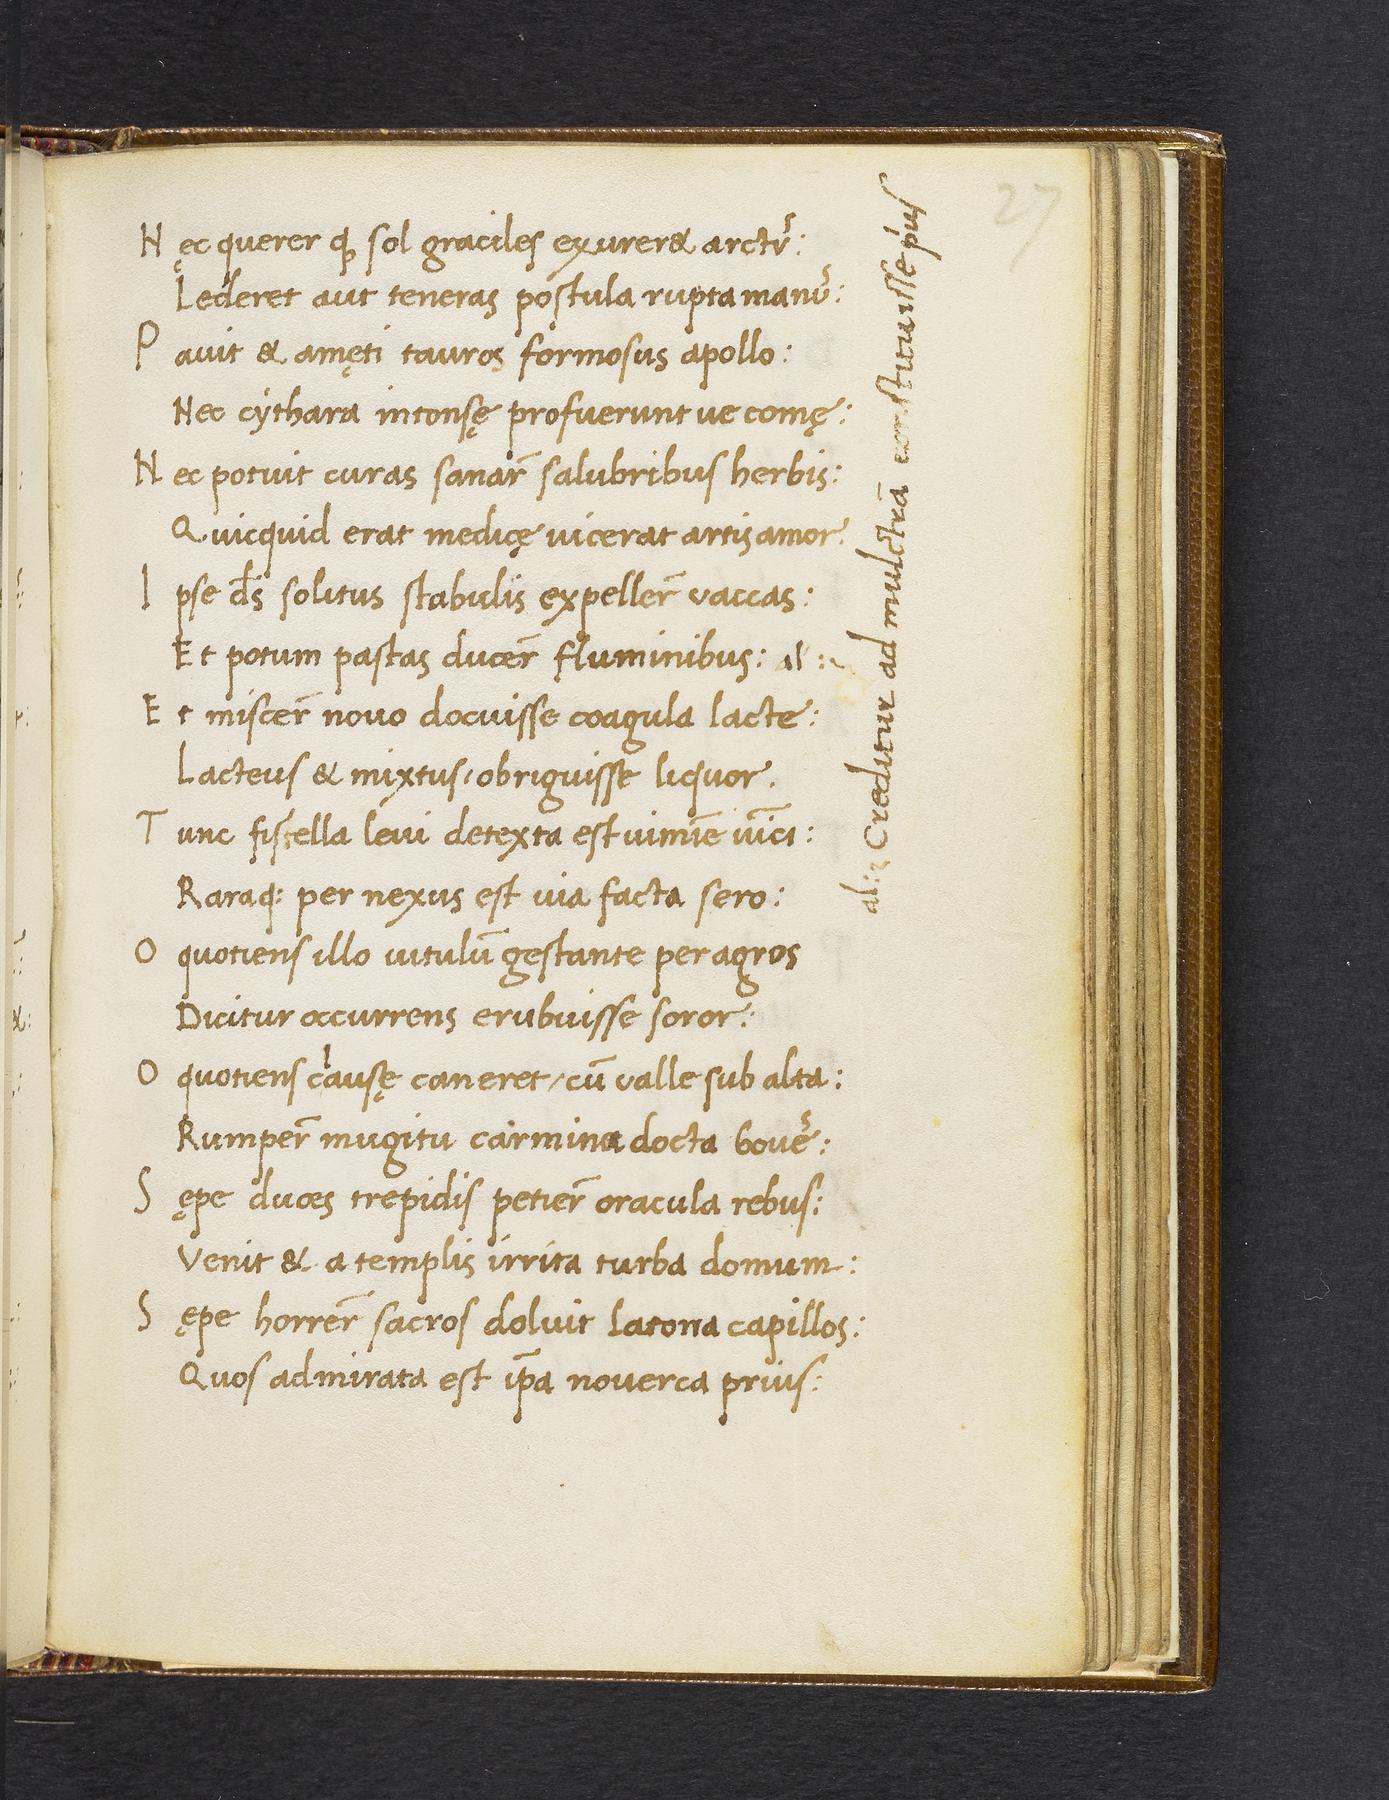 27
N ęc querer ꝙ sol graciles exurer& arctꝰ:
Lederet aut teneras postula rupta manꝰ:
P auit & amęti tauros formosus apollo:
Nec cythara intonsę profuerunt ue comę:
N ec potuit curas sanar̄ salubribus herbis:
Quicquid erat medicę uicerat artis amor.
I pse d̄s solitus stabulis expeller̄ vaccas:
Et potum pastas ducer̄ fluminibus: al:
E t miscer̄ nouo docuisse coagula lacte:
Lacteus & mixtus / obriguisse liquor.
T unc fiscella leui detexta est uimīe iūci:
Raraq: per nexus est uia facta sero:
O quotiens illo uitulū gestante per agros
Dicitur occurrens erubuisse soror:
O quotiens causę caneret / cū valle sub alta:
Rumper̄ mugitu carmina docta boue᷒:
S ępe duces trepidis petier̄ oracula rebus:
Venit & a templis irrita turba domum:
S ępe horrer̄ sacros doluit latona capillos:
Quos admirata est ip̄a nouerca prius:
al: Creditur ad mulctrā constituisse pius